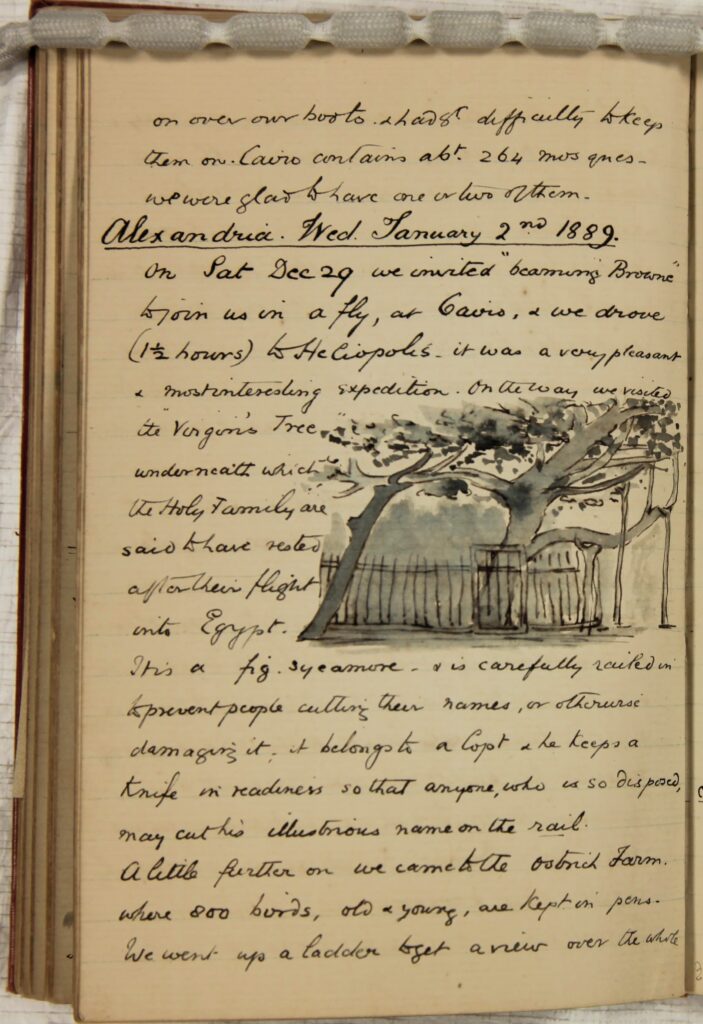 on over our boots. & had gt difficulty to keep
them on. Cairo contains abt. 264 mosques -
we were glad to have one or two of them.
Alexandria. Wed. January 2nd 1889.
On Sat Dec 29 we invited "beaming Browne"
to join us in a fly, at Cairo, & we drove
(1½ hours) to Heliopolis - it was a very pleasant
& most interesting expedition. On the way we visited
the "Virgin's Tree"
underneath which
the Holy Family are
said to have rested
after their flight
into Egypt.
It is a fig. sycamore - & is carefully railed in
to prevent people cutting their names, or otherwise
damaging it; it belongs to a Copt & he keeps a
Knife in readiness so that anyone, who is so disposed,
may cut his illustrious name on the rail.
A little further on we came to the Ostrich Farm.
where 800 birds, old & young, are kept in pens.
We went up a ladder to get a view over the whole